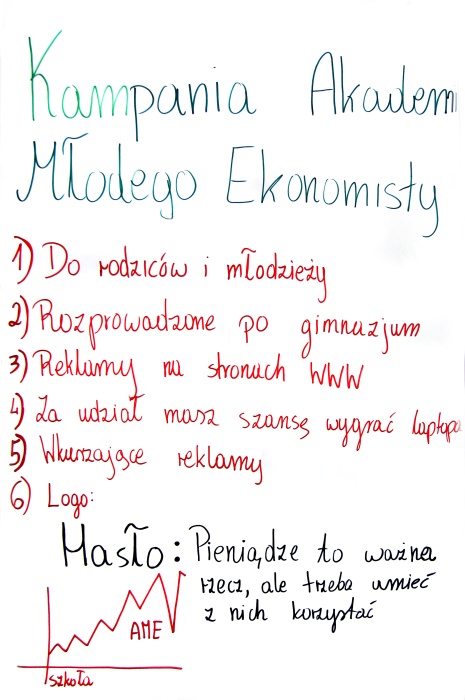 Kampania Akademi
Młodego Ekonomisty
1) Do rodziców i młodzieży
2) Rozprowadzone po gimnazjum
3) Reklamy na stronach WWW
4) Za udział masz szansę wygrać laptopa
5) Wkurzające reklamy
6) Logo:
Hasło: Pieniądze to ważna
rzecz, ale trzeba umieć
z nich korzystać
AME
szkoła